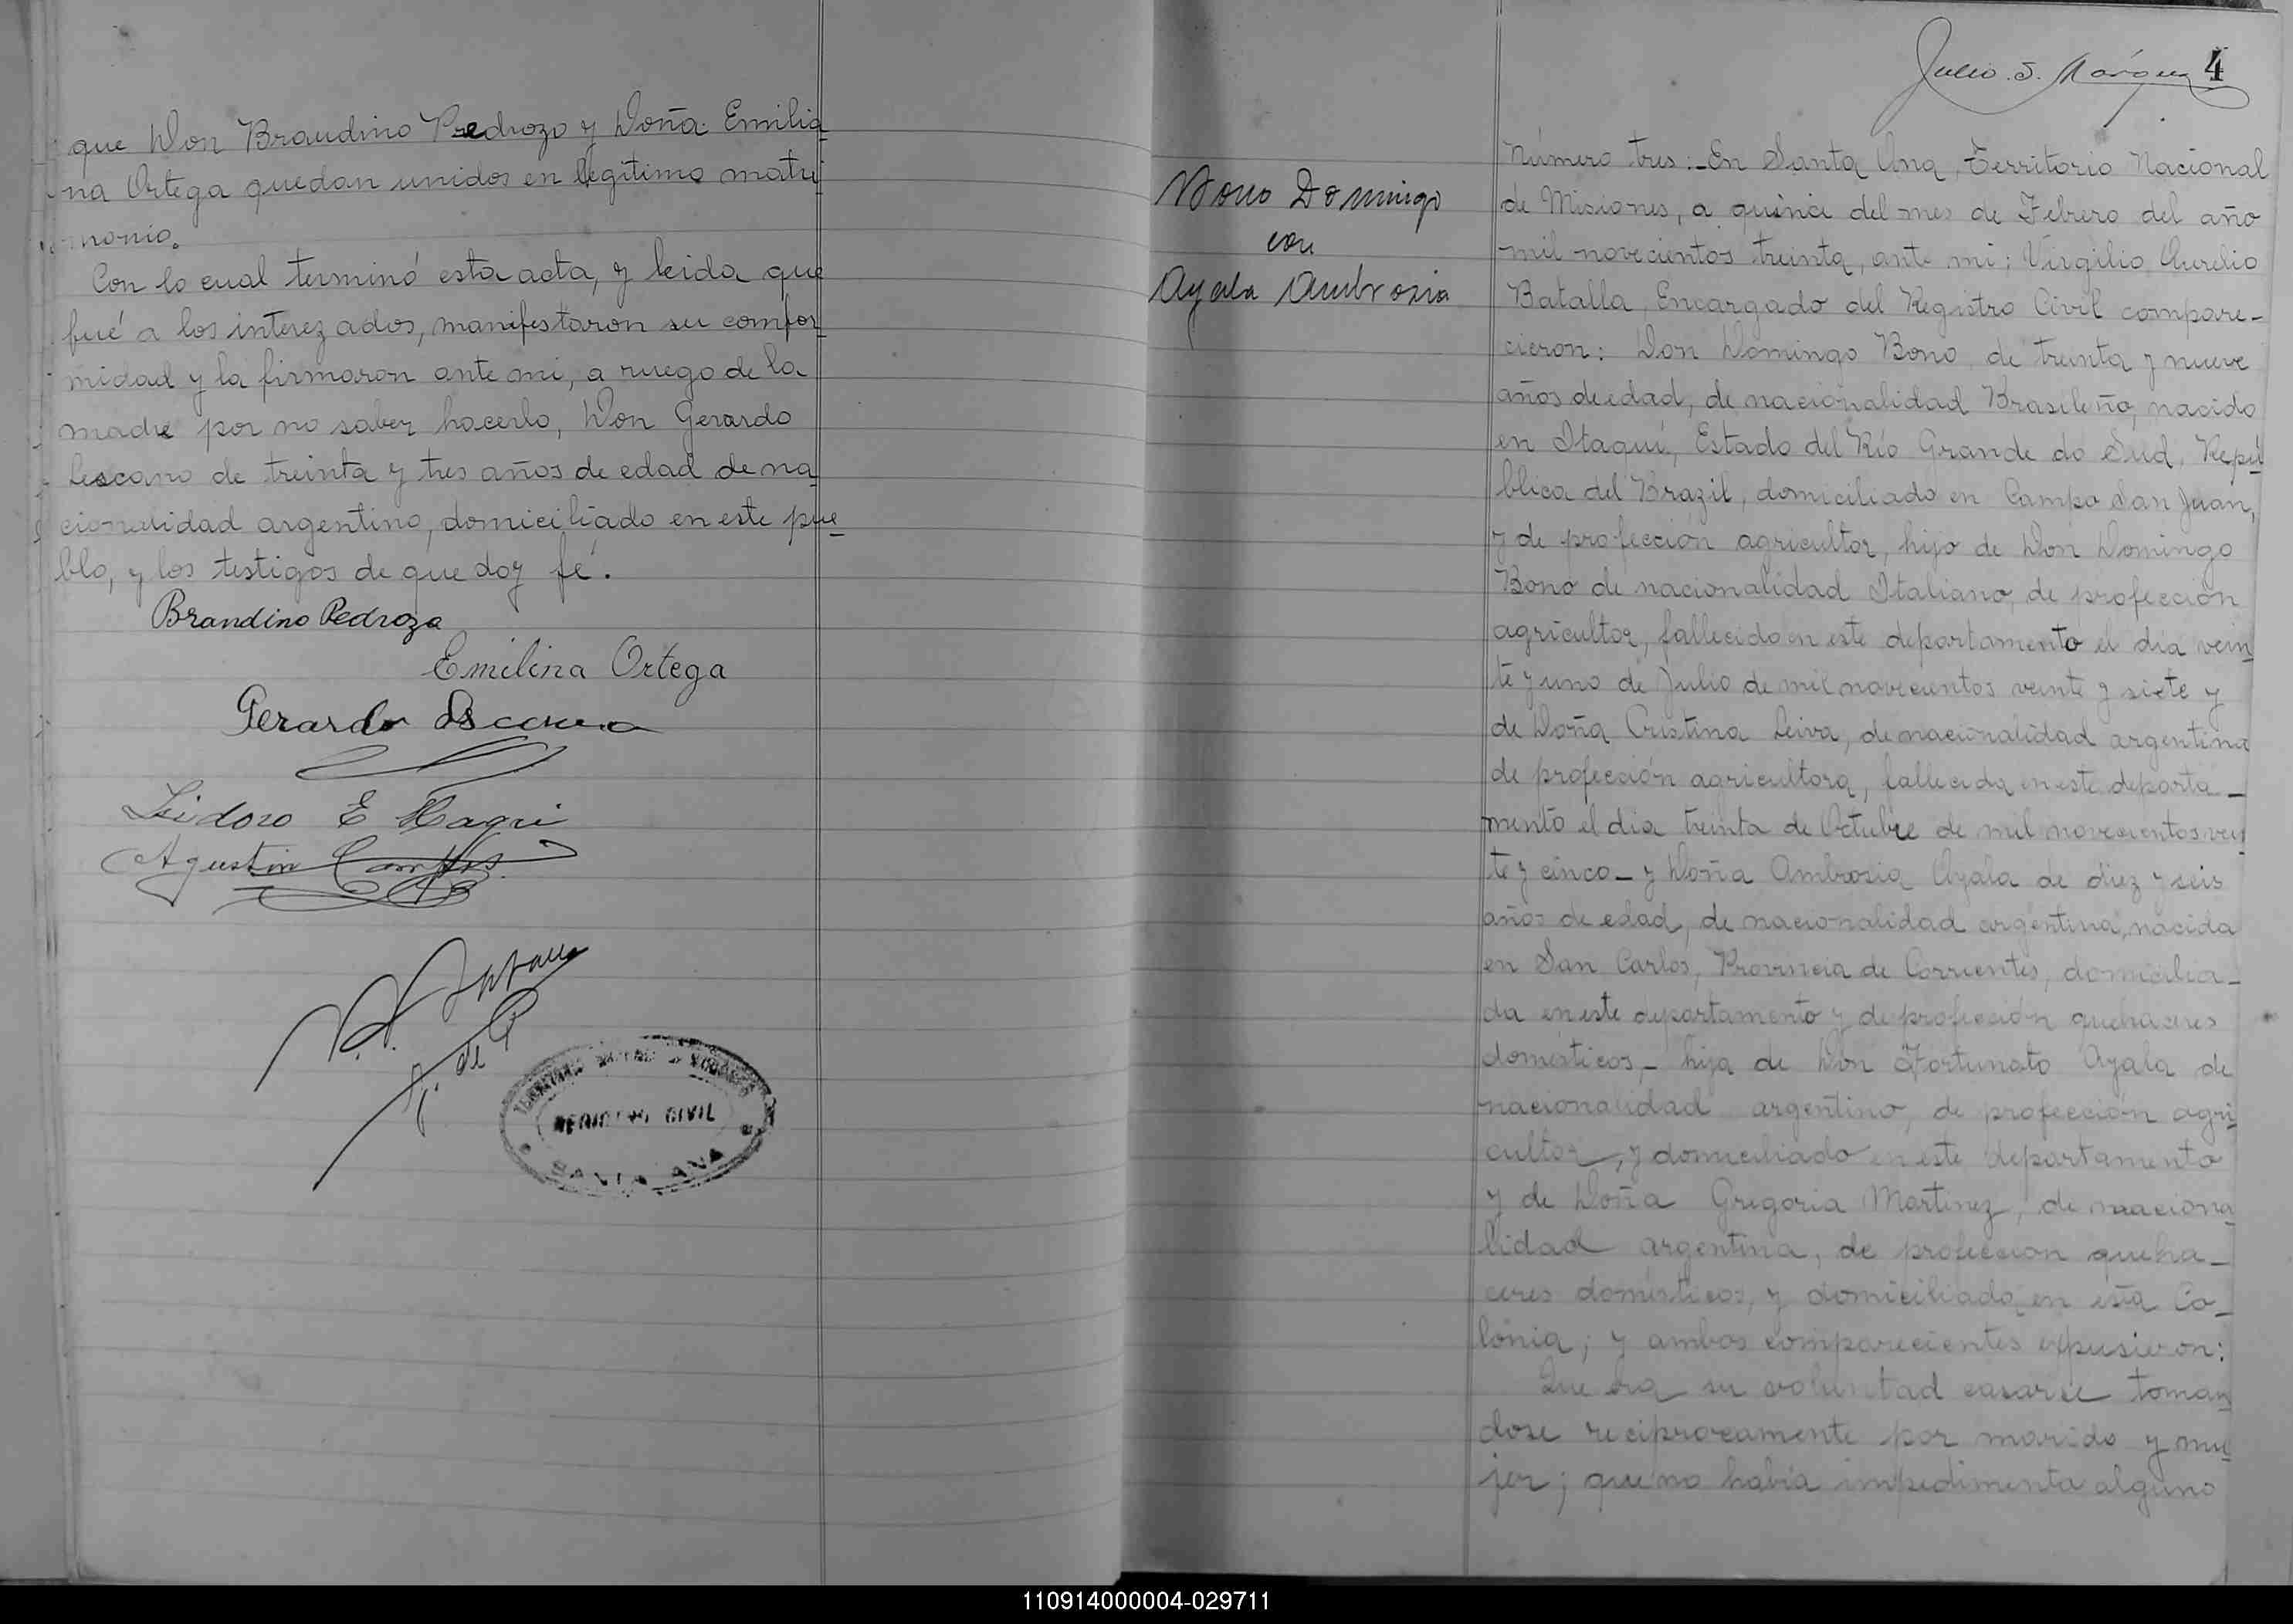 que Don Braudino Predrozo y Doña Emilia-
na Ortega quedan unidos en legítimo matri
monio.
Con lo cual terminó esta acta, y leida que
fué a los interezados, manifestaron su comfor-
midad y la firmaron ante mi, a ruego de la
madre por no saber hacerlo, Don Gerardo
Lescano de treinta y tres años de edad de na
cionalidad argentino, domiciliado en este pue-
blo, y los testigos de que doy fé.
Brandino Pedroza
Emilina Ortega
Gerardo
Isidoro E
Agustin
REGISTRO CIVIL
SANTA ANA
Julio S. Márquez 4
Bono Domingo
con
Ayala Ambrosia
Número tres:- En Santa Ana, Territorio Nacional
de Misiones, a quince del mes de Febrero del año
mil novecientos treinta, ante mi; Virgilio Aurelio
Batalla, Encargado del Registro Civil compare-
cieron: Don Domingo Bono de treinta y nueve
años de edad, de nacionalidad Brasileño, nacido
en Itaquí, Estado del Río Grande do Sud, Repú
blica del Brazil, domiciliado en Campo San Juan,
y de profección agricultor, hijo de Don Domingo
Bono de nacionalidad Italiano, de profección
agricultor, fallecido en este departamento el dia vein
te y uno de Julio de mil novecientos veinte y siete y
de Doña Cristina Leiva, de nacionalidad argentina
de profección agricultora, fallecida en este departa-
mento el dia treinta de Octubre de mil novecientos vein
te y cinco- y Doña Ambrosia Ayala de diez y seis
años de edad, de nacionalidad argentina, nacida
en San Carlos, Provincia de Corrientes, domicilia-
da en este departamento y de profección quehaceres
domésticos,- hija de Don Fortunato Ayala de
nacionalidad argentino, de profección agri
cultor, y domiciliado en este departamento
y de Doña Gregoria Martinez, de naciona
lidad argentina, de profección queha-
ceres domésticos, y domiciliada en esta Co-
lonia; y ambos comparecientes expusieron:
Que era su voluntad casarse toman
dose reciprocamente por marido y mu-
jer; que no había impedimenta alguno
110914000004-029711